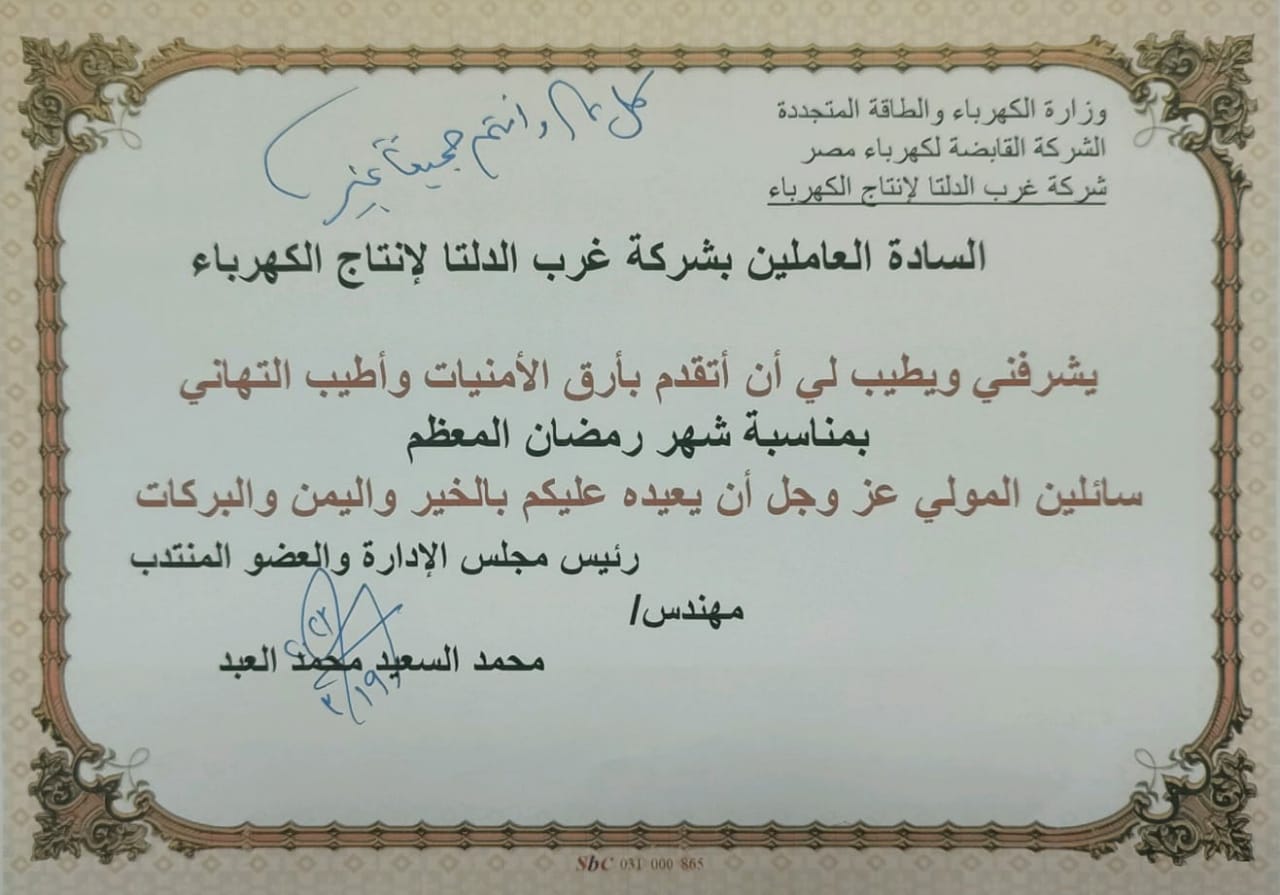 وزارة الكهرباء والطاقة المتجددة
الشركة القابضة لكهرباء مصر
شركة غرب الدلتا لإنتاج الكهرباء
كل عام وأنتم جميعاً بخير
السادة العاملين بشركة غرب الدلتا لإنتاج الكهرباء
يشرفني ويطيب لي أن أتقدم بأرق الأمنيات وأطيب التهاني
بمناسبة شهر رمضان المعظم
سائلين المولي عز وجل أن يعيده عليكم بالخير واليمن والبركات
رئيس مجلس الإدارة والعضو المنتدب
مهندس/
محمد السعيد محمد العبد
٣/١٩
SbC 031 000 865